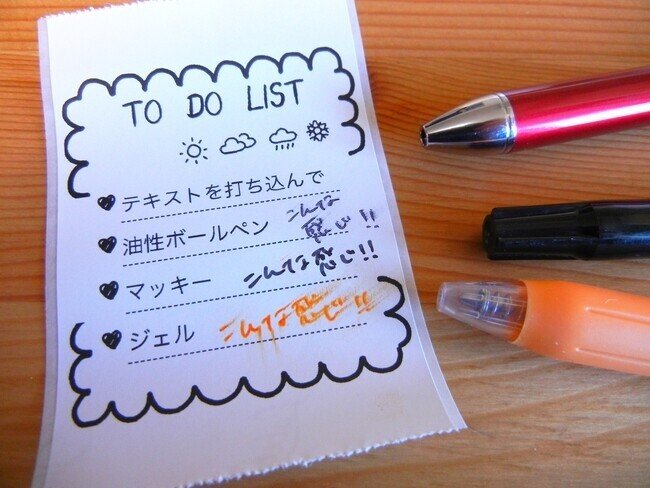 TO DO LIST
テキストを打ち込んで
油性ボールペン こんな
感じ!!
マッキー こんな感じ!!
ジェル こんな感じ!!